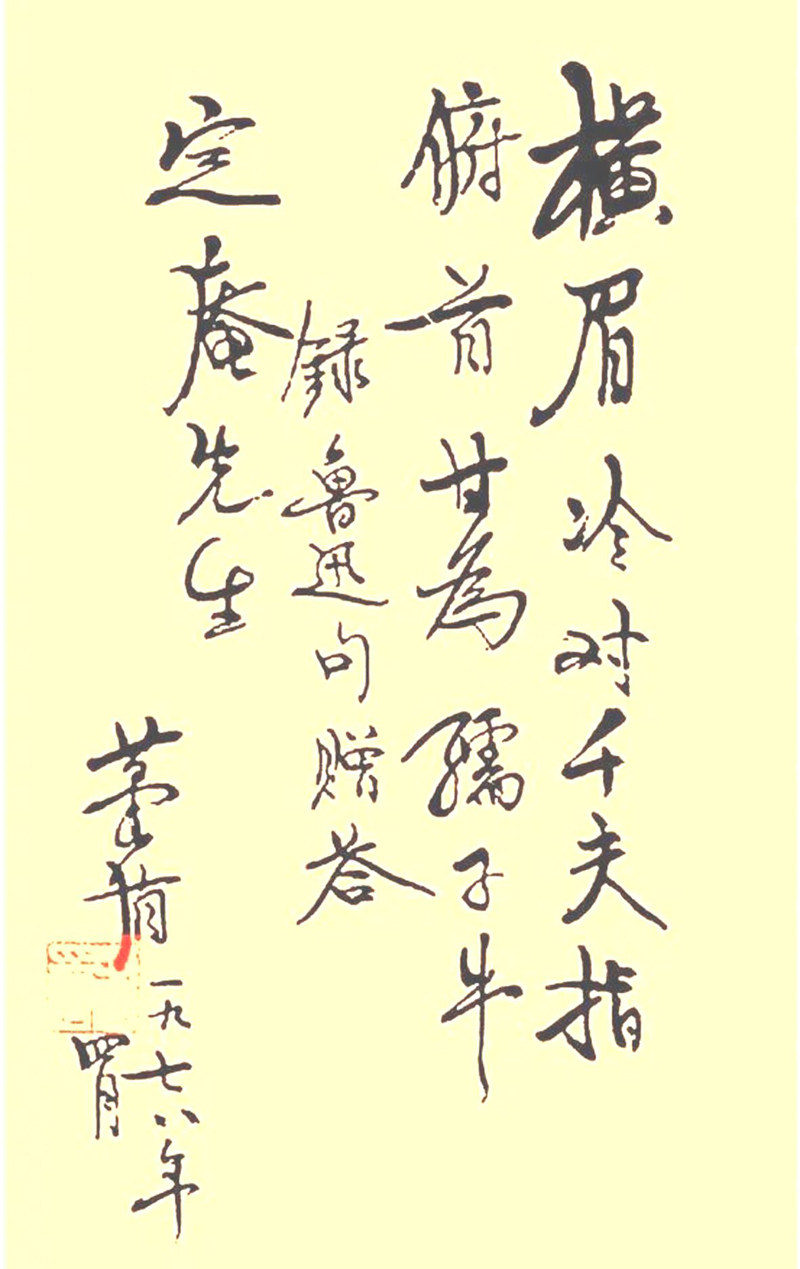 横眉冷对千夫指
俯首甘為孺子牛
録魯迅句赠荅
定庵先生
一九七八年
四月